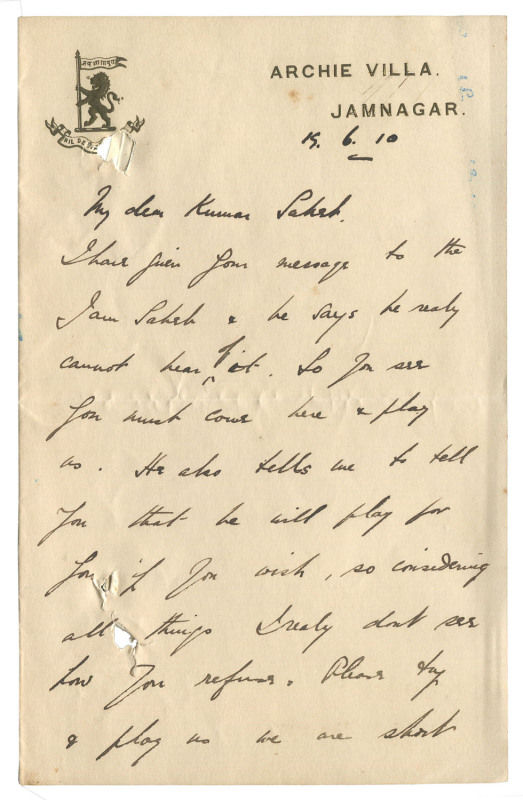 ARCHIE VILLA.
JAMNAGAR.
19. 6. 10
My dear Kumar Saheb.
I have given your message to the
Jam Saheb & he says he realy
cannot hear of it. So you see
you must come here & play
us. He also tells me to tell
you that he will play for
you if you wish, so considering
all things I realy dont see
how you refuse. Please try
& play us we are short